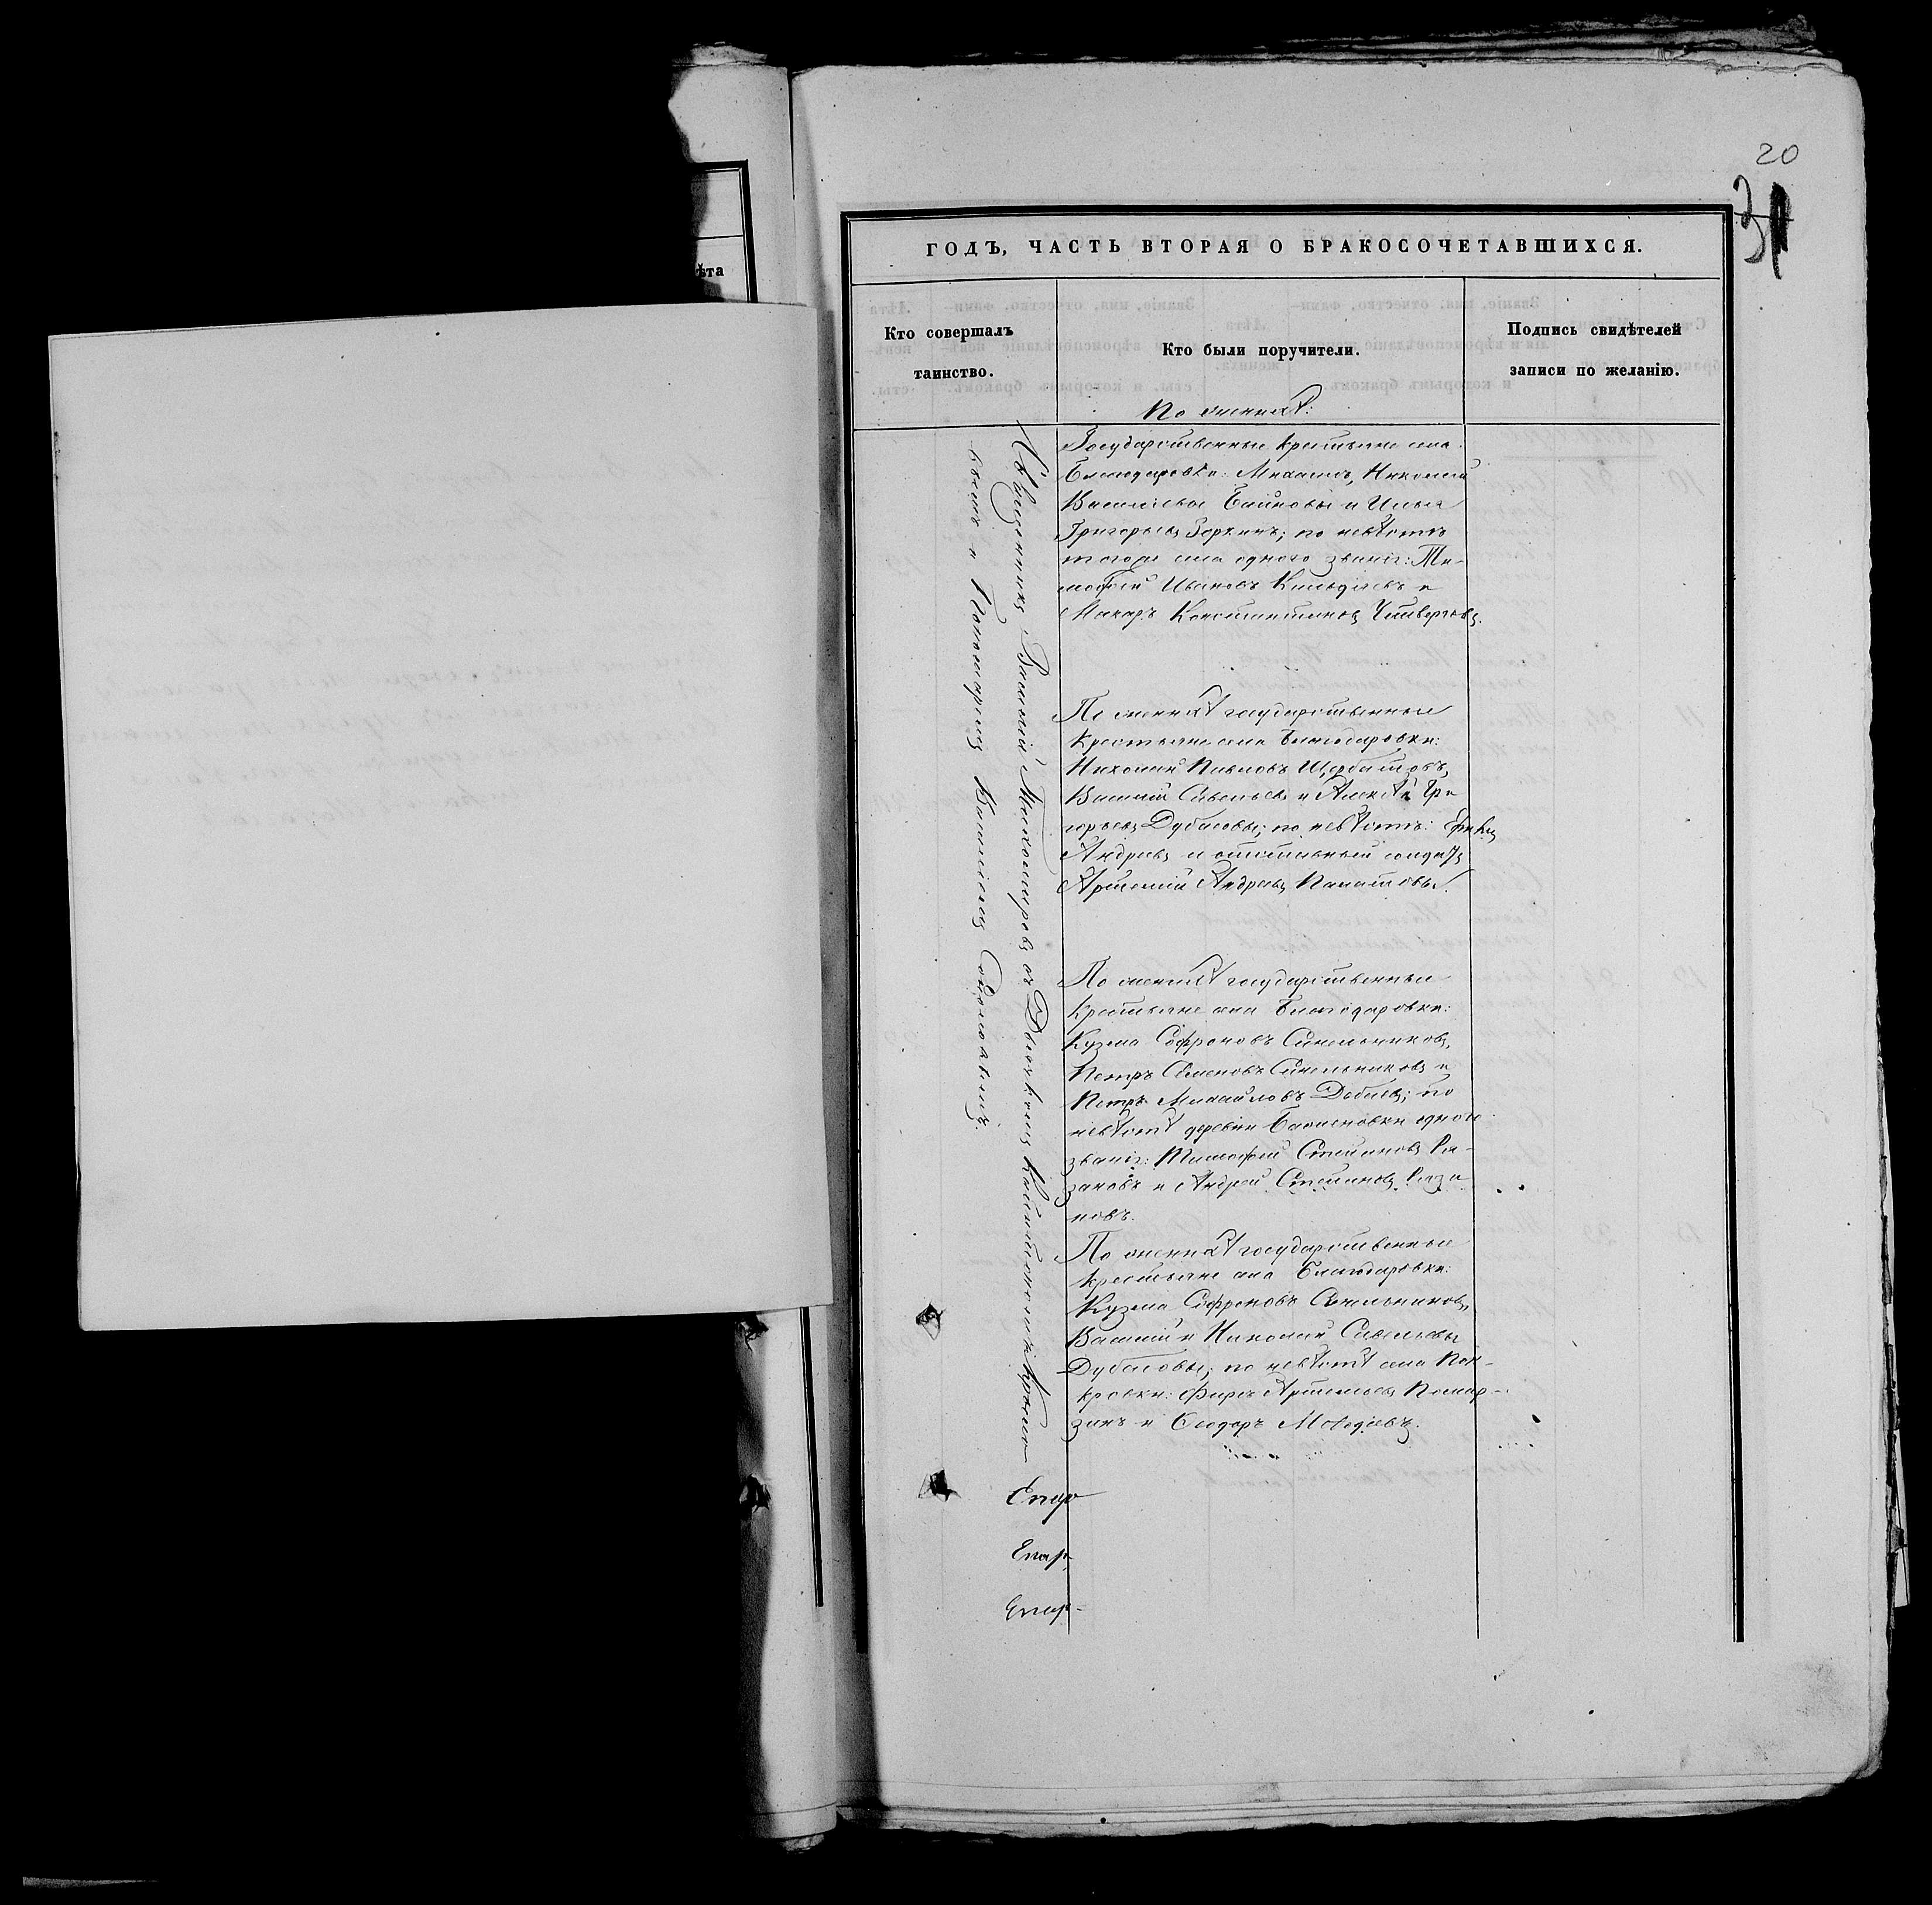 20
31
ѣта
ГОДЪ, ЧАСТЬ ВТОРАЯ О БРАКОСОЧЕТАВШИХСЯ.
Кто совершалъ
таинство.
Кто были поручители.
Подпись свидѣтелей
записи по желанію.
По женихѣ:
Священникъ Василій съ Діакономъ
и Пономаремъ Василіемъ Соколовымъ.
Государственные крестьяне села
Благодаровки: Михаилъ, Николай
Васильевы и Илья
Григорьевъ Зоркинъ; по невѣстѣ
тогоже села одного званія: Ти-
мофей Ивановъ и
Макаръ Константиновъ Четверговъ.
По женихѣ государственные
крестьяне села Благодаровки:
Николай Павловъ Щербаковъ,
Василій Савельевъ и Алексѣй Гри
горьевъ Дубасовы; по невѣстѣ:
Андреевъ и отставный солдатъ
Арсеній Андреевъ
По женихѣ государственные
крестьяне села Благодаровки:
Кузма Софроновъ Синельниковъ,
Петръ Семеновъ Синельниковъ и
Петръ Михайловъ по
невѣстѣ деревни одного
званія: Тимофей Степановъ Ря-
зановъ и Андрей Степановъ Ряза
новъ.
По женихѣ государственные
крестьяне села Благодаровки:
Кузма Софроновъ Синельниковъ,
Василій и Николай Савельевы
Дубасовы; по невѣстѣ села Пок-
ровки: Фирсъ Арсеньевъ
и Сидоръ
Епар
Епар
Епар